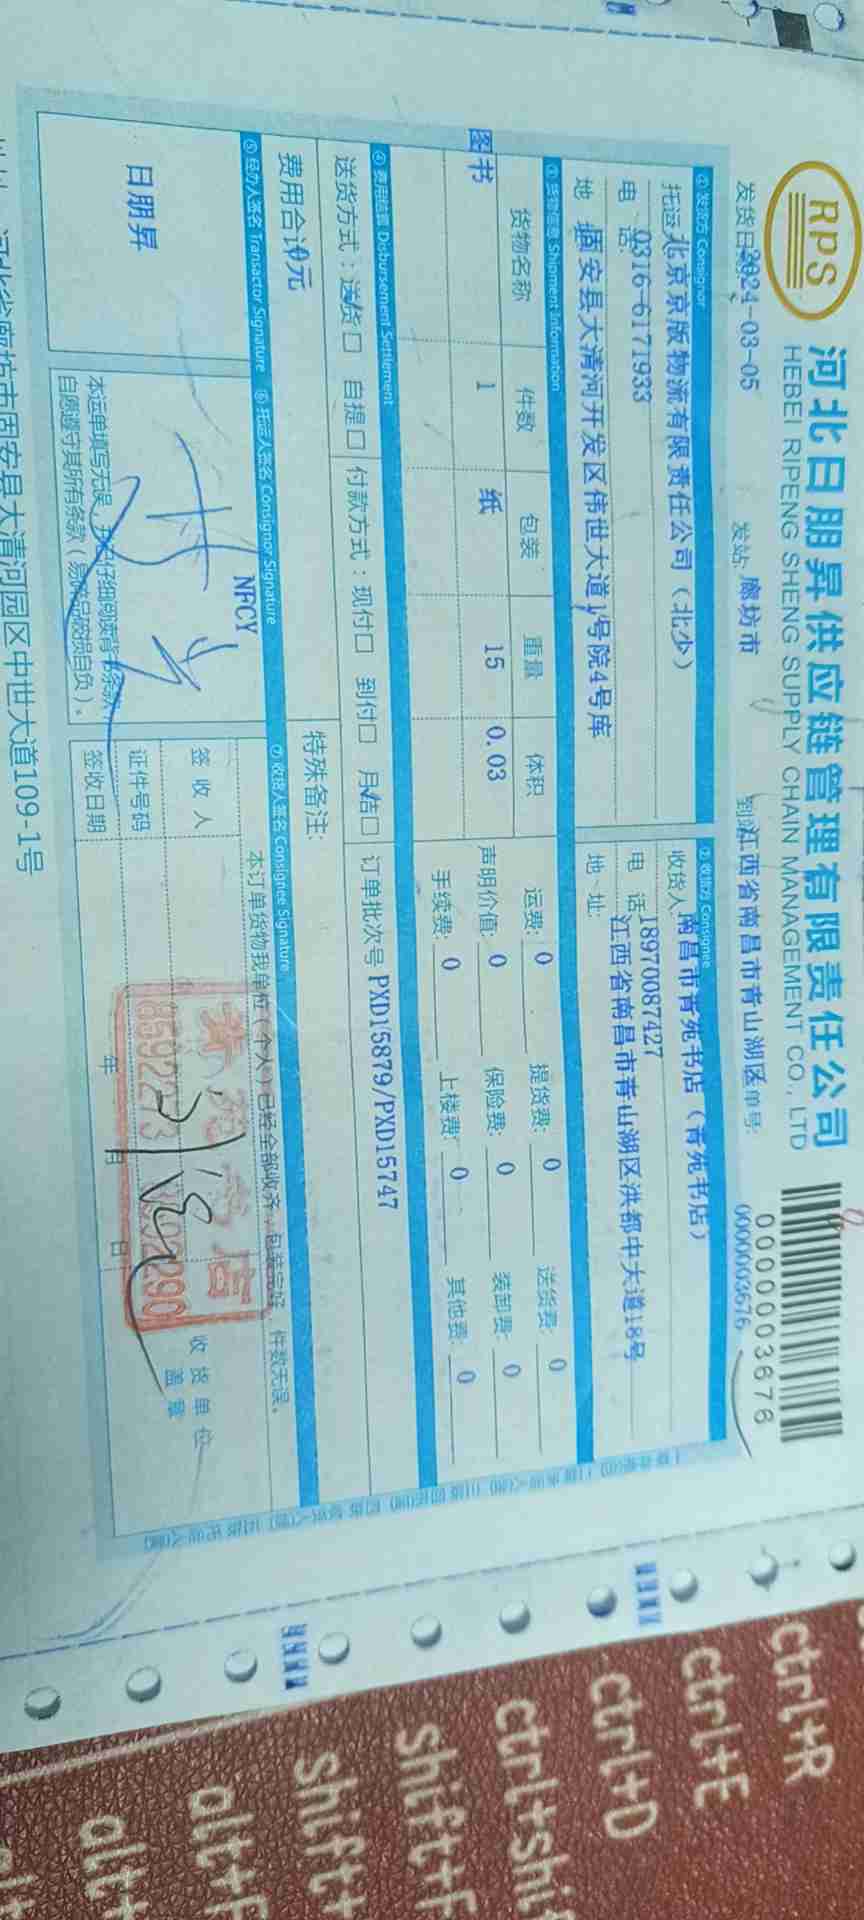 RPS
河北日朋昇供应链管理有限责任公司
HEBEI RIPENG SHENG SUPPLY CHAIN MANAGEMENT CO., LTD
0000003676
发货日期 2024-03-05 发站: 廊坊市 到站: 江西省南昌市青山湖区 单号: 0000003676
① 发货方 Consignor ② 收货方 Consignee
托运 北京京版物流有限责任公司（北少） 收货人: 南昌市青苑书店（青苑书店）
电 话: 0316-6171933 电 话: 18970087427
地 固安县大清河开发区伟世大道1号院4号库 地 址: 江西省南昌市青山湖区洪都中大道18号
③ 货物信息 Shipment Information
货物名称 件数 包装 重量 体积 运费: 0 提货费: 0 送货费: 0
图书 1 纸 15 0.03 声明价值: 0 保险费: 0 装卸费: 0
手续费: 0 上楼费: 0 其他费: 0
④ 费用结算 Disbursement Settlement
送货方式: 送货□ 自提□ 付款方式: 现付□ 到付□ 月结□ 订单批次号 PXD15879/PXD15747
费用合计0元 特殊备注:
⑤ 经办人签名 Transactor Signature ⑥ 托运人签名 Consignor Signature ⑦ 收货人签名 Consignee Signature
日朋昇
NFCY
本运单填写无误，并已仔细阅读背书条款，
自愿遵守其所有条款（易碎品破损自负）。
本订单货物我单位（个人）已经全部收齐，包装完好，件数无误。
签 收 人
证件号码
签收日期 年 月 日
收货单位
盖章
8592273
河北省廊坊市固安县大清河园区中世大道109-1号
ctrl+R
ctrl+E
ctrl+D
ctrl+shi
shift+F
shift+
alt+F
alt+